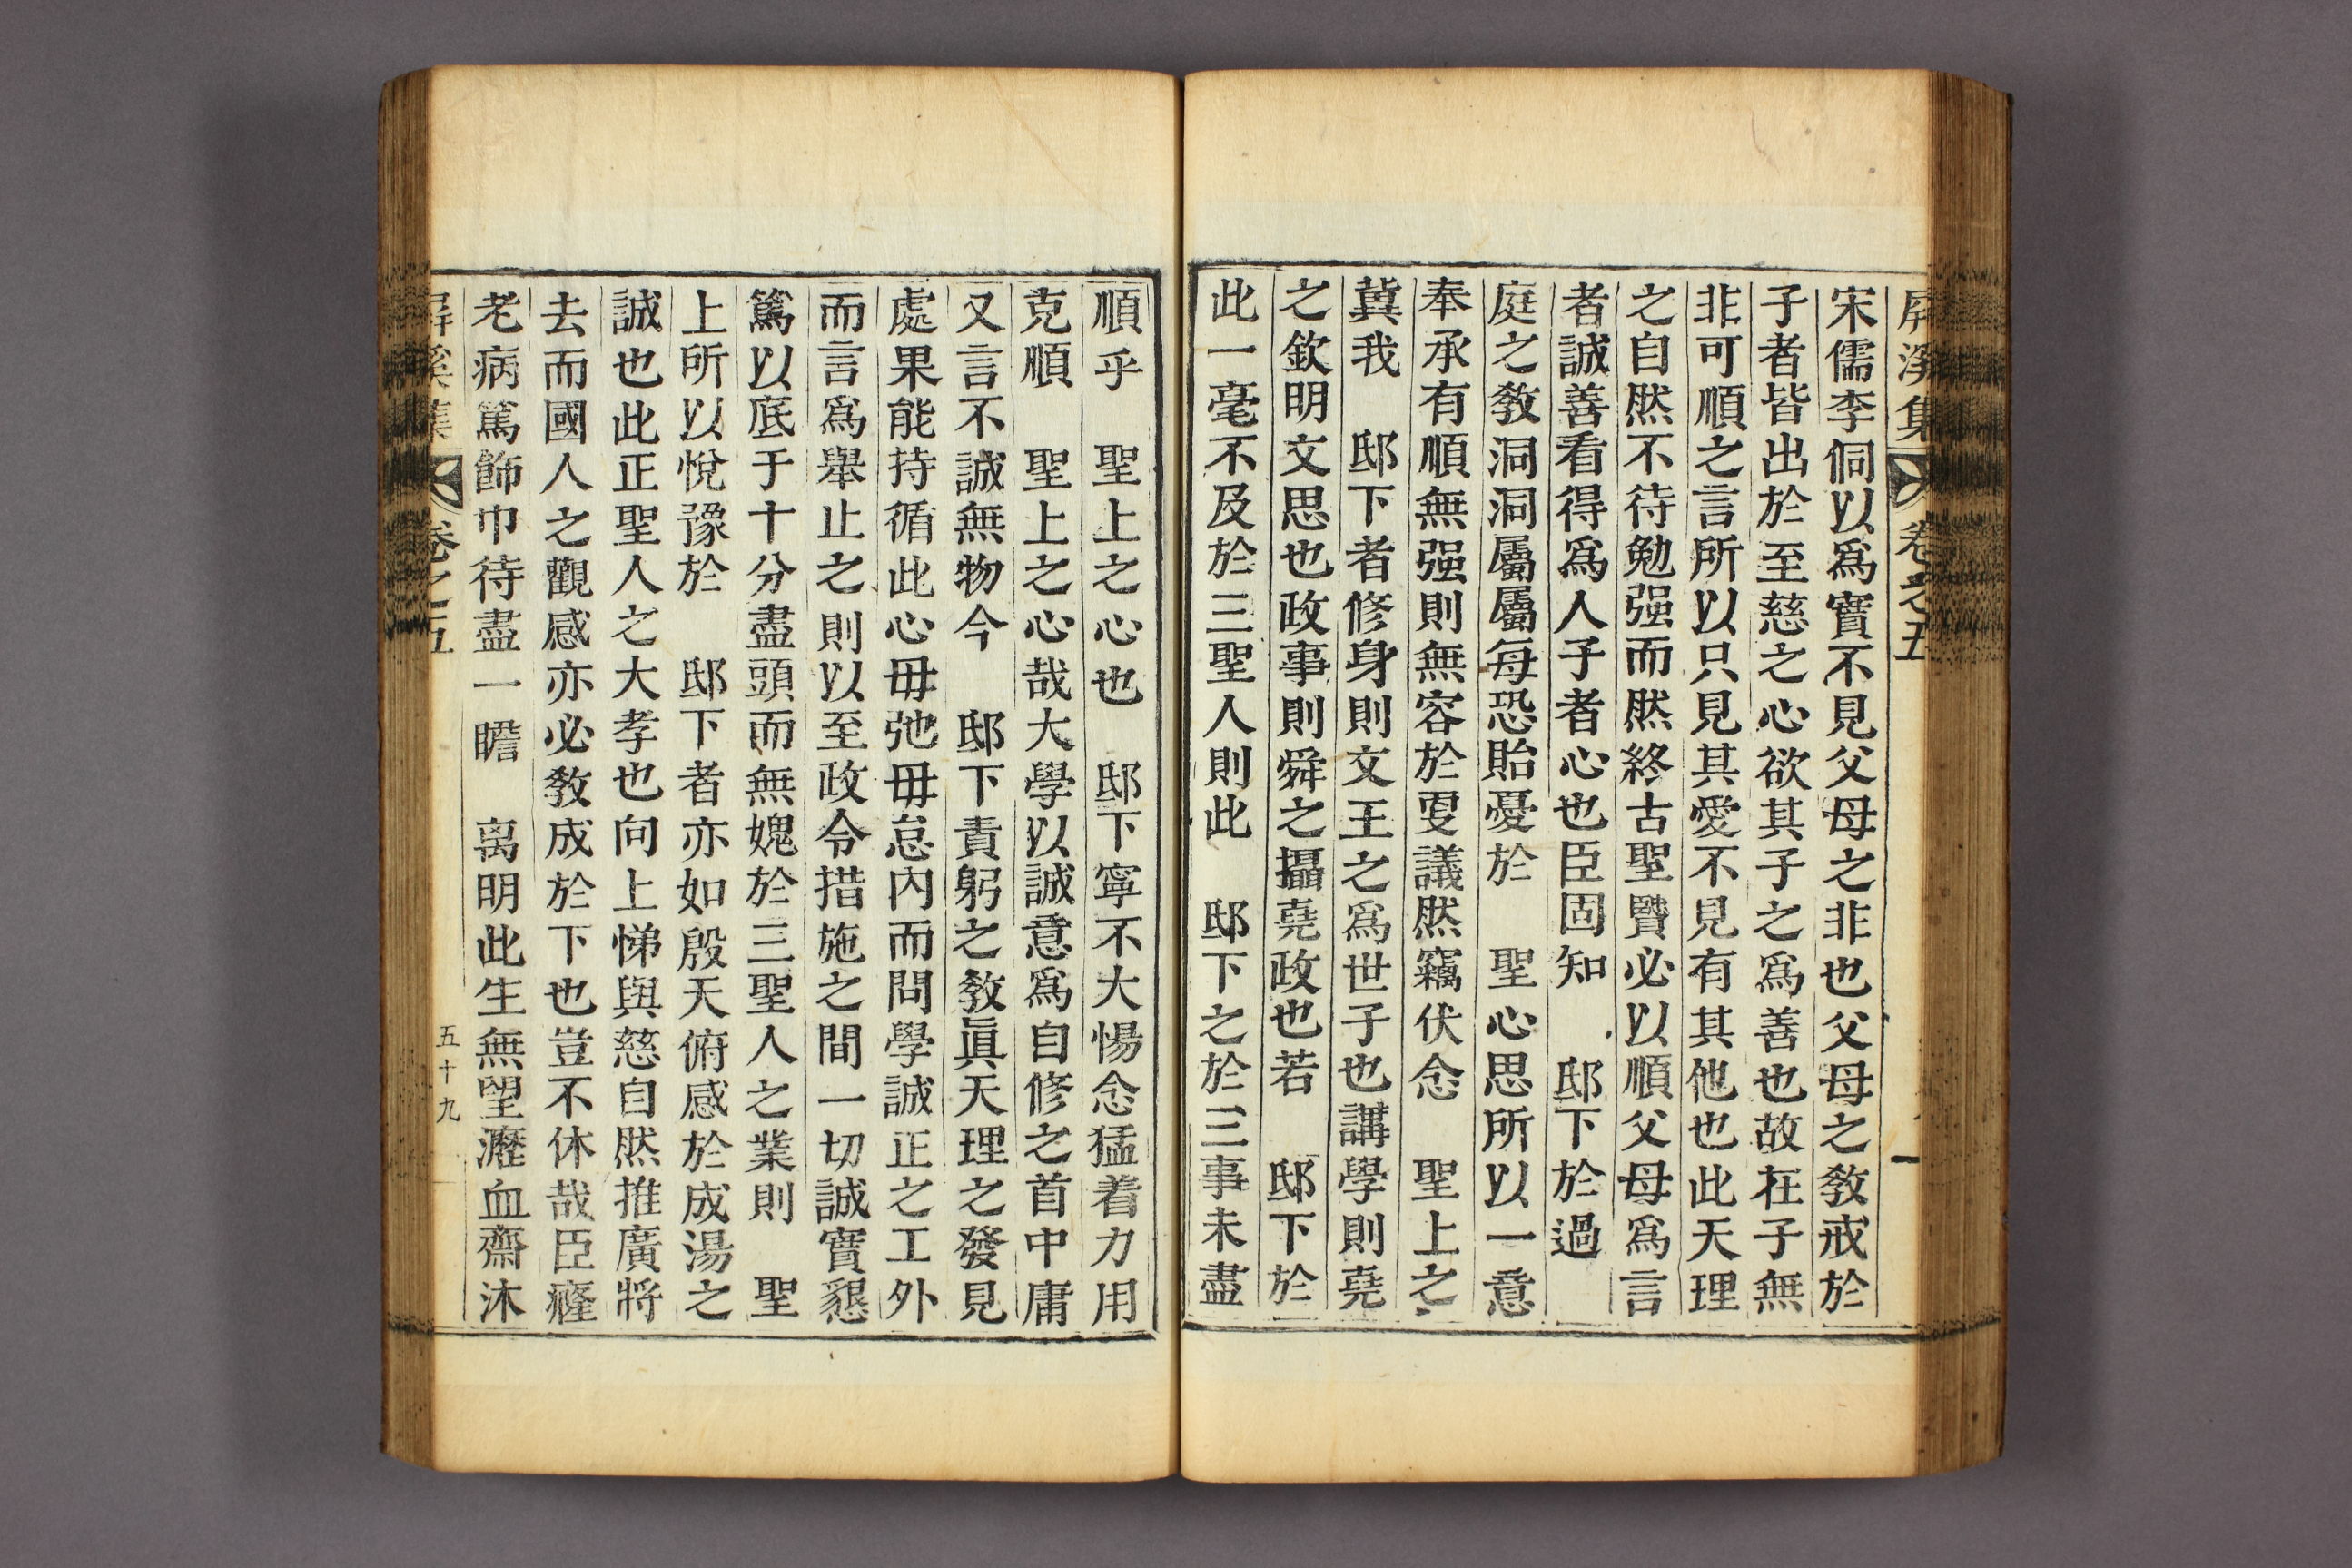 屛溪集 卷之五
宋儒李侗以爲實不見父母之非也父母之敎戒於
子者皆出於至慈之心欲其子之爲善也故在子無
非可順之言所以只見其愛不見有其他也此天理
之自然不待勉强而然終古聖賢必以順父母爲言
者誠善看得爲人子者心也臣固知 邸下於過
庭之敎洞洞屬屬每恐貽憂於 聖心思所以一意
奉承有順無强則無容於更議然竊伏念 聖上之
冀我 邸下者修身則文王之爲世子也講學則堯
之欽明文思也政事則舜之攝堯政也若 邸下於
此一毫不及於三聖人則此 邸下之於三事未盡
順乎 聖上之心也 邸下寧不大惕念猛着力用
克順 聖上之心哉大學以誠意爲自修之首中庸
又言不誠無物今 邸下責躬之敎眞天理之發見
處果能持循此心毋弛毋怠內而問學誠正之工外
而言爲擧止之則以至政令措施之間一切誠實懇
篤以底于十分盡頭而無媿於三聖人之業則 聖
上所以悅豫於 邸下者亦如殷天俯感於成湯之
誠也此正聖人之大孝也向上悌與慈自然推廣將
去而國人之觀感亦必敎成於下也豈不休哉臣癃
老病篤飾巾待盡一瞻 离明此生無望瀝血齋沐
屛溪集 卷之五 五十九